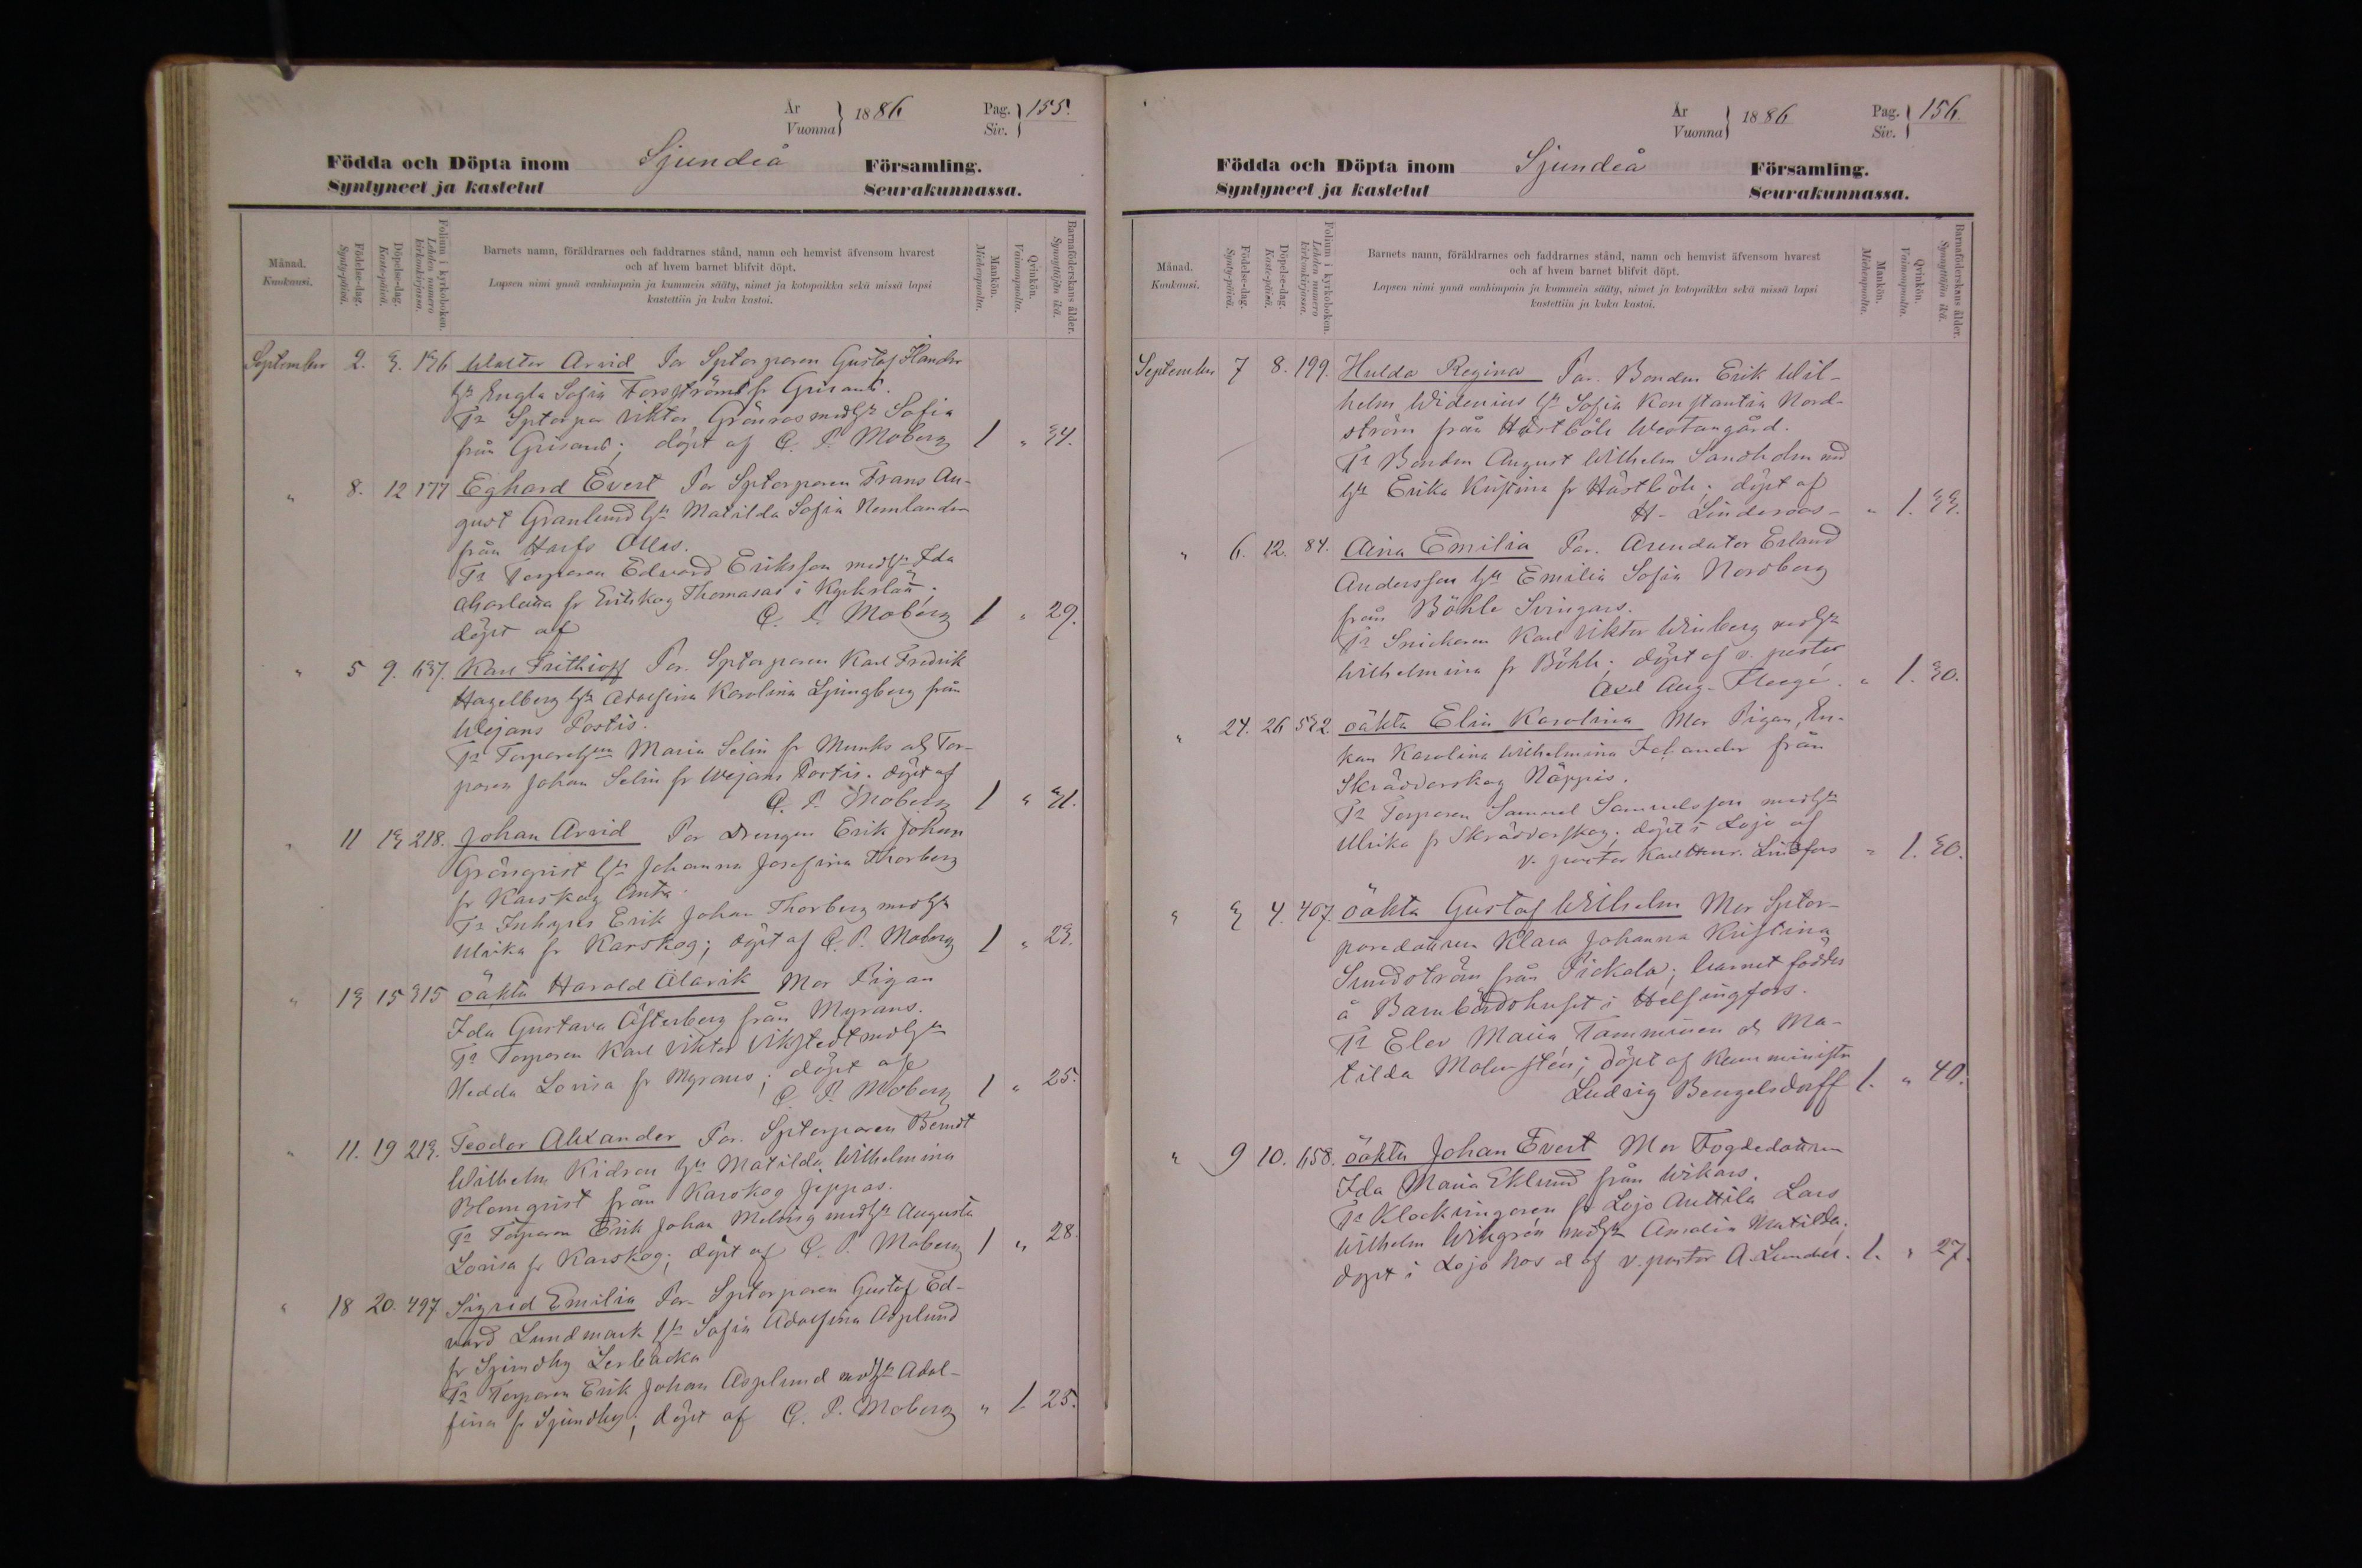 År
Vuonna
1886
Pag.
Siv.
155.
Födda och Döpta inom Sjundeå Församling.
Syntyneet ja kastetut Seurakunnassa.
Månad.
Kuukausi.
Födelse-dag.
Synty-päivä.
Döpelse-dag.
Kaste-päivä.
Folium i kyrkoboken.
Lehden numero kirkonkirjassa.
Barnets namn, föräldrarnes och faddrarnes stånd, namn och hemvist äfvensom hvarest
och af hvem barnet blifvit döpt.
Lapsen nimi ynnä vanhimpain ja kummein sääty, nimet ja kotopaikka sekä missä lapsi
kastettiin ja kuka kastoi.
Mankön.
Miehenpuolta.
Qvinkön.
Vaimonpuolta.
Barnaföderskans ålder.
Synnyttäjän ikä.
September 2. 3. 136 Walter Arvid Par Sptorparen Gustaf
hu Engla Sofia Forsström fr
Fr Sptorpar Viktor Grönroos med hu Sofia
från ; döpt af C. P. Moberg 1 " 34.
" 8. 12 177 Eghard Evert Par Sptorparen Frans Au-
gust Granlund hu Matilda Sofia
från Ollas.
Fr Torparen Edvard Eriksson med hu Ida
fr Thomasas i Kyrkslätt.
döpt af C. P. Moberg 1 " 29.
" 5 9. 637. Karl Frithioff Par. Sptorparen Karl Fredrik
Hagelberg hu Adolfina Karolina Ljungberg från
Wejans Portis.
Fr Maria Selin fr Munks o Tor-
paren Johan Selin fr Wejans Portis. döpt af
C. P. Moberg 1 " 31.
" 11 13 218. Johan Arvid Par Drengen Erik Johan
Grönqvist hu Johanna Josefina Thorberg
fr Karskog Antas
Fr Inhyses Erik Johan Thorberg med hu
Ulrika fr Karskog; döpt af C. P. Moberg 1 " 23.
" 13 15 315 oäkta Harald Alarik Mor Pigan
Ida Gustava Österberg från Myrans.
Fr Torparen Karl Viktor Vikstedt med hu
Hedda Lovisa fr Myrans; döpt af
C. P. Moberg 1 " 25.
" 11. 19 213. Teodor Alexander Par. Sptorparen Berndt
Wilhelm hu Matilda Wilhelmina
Blomqvist från Karskog Jeppas.
Fr Torparen Erik Johan med hu Augusta
Lovisa fr Karskog; döpt af C. P. Moberg 1 " 28.
" 18 20. 497 Sigrid Emilia Par. Sptorparen Gustaf Ed-
vard Lundmark hu Sofia Adolfina Asplund
fr Sjundby
Fr Torparen Erik Johan Asplund med hu Adol-
fina fr Sjundby; döpt af C. P. Moberg " 1 25.
År
Vuonna
1886
Pag.
Siv.
156.
Födda och Döpta inom Sjundeå Församling.
Syntyneet ja kastetut Seurakunnassa.
Månad.
Kuukausi.
Födelse-dag.
Synty-päivä.
Döpelse-dag.
Kaste-päivä.
Folium i kyrkoboken.
Lehden numero kirkonkirjassa.
Barnets namn, föräldrarnes och faddrarnes stånd, namn och hemvist äfvensom hvarest
och af hvem barnet blifvit döpt.
Lapsen nimi ynnä vanhimpain ja kummein sääty, nimet ja kotopaikka sekä missä lapsi
kastettiin ja kuka kastoi.
Mankön.
Miehenpuolta.
Qvinkön.
Vaimonpuolta.
Barnaföderskans ålder.
Synnyttäjän ikä.
September 7 8. 199. Hulda Regina Par. Bonden Erik Wil-
helm Widenius hu Sofia Konstantia Nord-
ström från Hästböle Westangård.
Fr Bonden August Wilhelm Sandholm med
hu Erika Kristina fr Hästböle; döpt af
H. Linderoos " 1. 33.
" 6. 12. 84. Aina Emilia Par. Arendator Erland
Andersson hu Emilia Sofia Nordberg
från Böhle Svingars.
Fr Snickaren Karl Viktor Winberg med hu
Wilhelmina fr Böhle; döpt af v. pastor
Axel Aug. " 1. 30.
" 24. 26 532. oäkta Elin Karolina Mor Pigan, En-
kan Karolina Wilhelmina från
Skräddarskog Näppis.
Fr Torparen Samuel Samuelsson med hu
Ulrika fr Skräddarskog; döpt i Lojo af
v. pastor Karl Henr. Lindfors " 1. 30.
" 3 4. 407. oäkta Gustaf Wilhelm Mor Sptor-
paredottren Klara Johanna Kristina
Sundström från Pickala; barnet föddes
å Barnbördshuset i Helsingfors.
Fr Elev Maria Tamminen o Ma-
tilda Malmstén; döpt af Kom minister
Ludvig Bengelsdorff 1. " 40.
" 9 10. 658. oäkta Johan Evert Mor Fogdedottren
Ida Maria Eklund från Wikars.
Fr Klockringaren fr Lojo Anttila Lars
Wilhelm Wingrén med hu Amalia Matilda;
döpt i Lojo hos o af v. pastor A. 1. " 27.